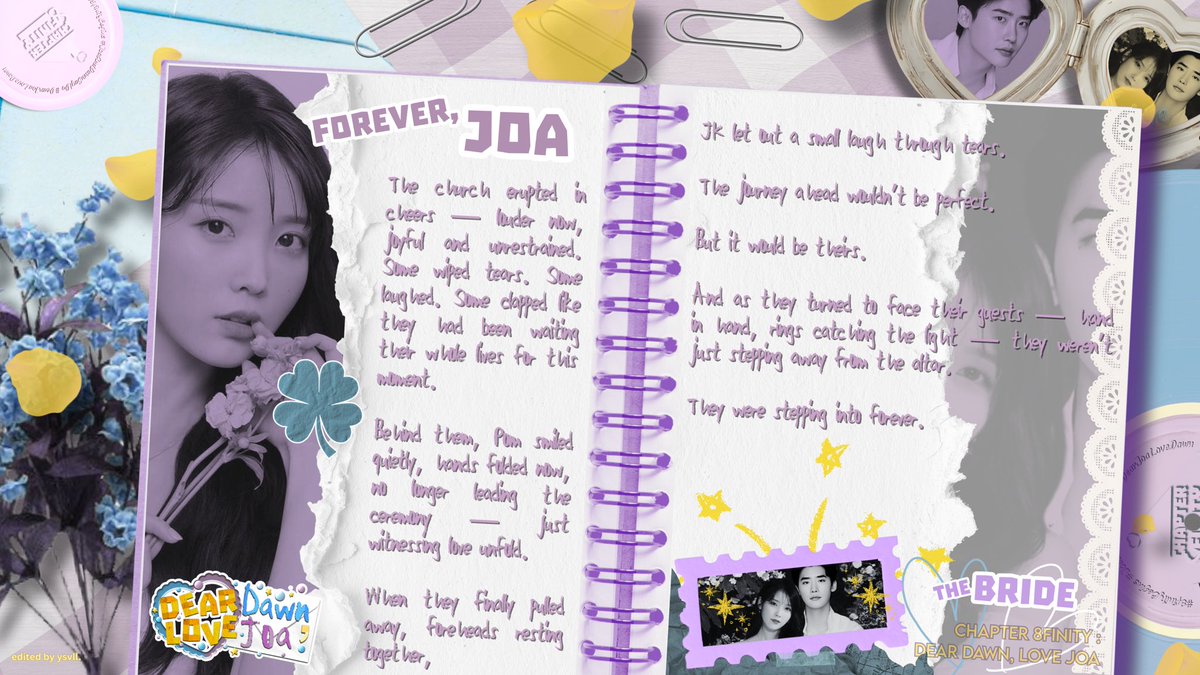 FOREVER,
JOA
The church erupted in
cheers — louder now,
joyful and unrestrained.
Some wiped tears. Some
laughed. Some clapped like
they had been waiting
their whole lives for this
moment.
Behind them, Pom smiled
quietly, hands folded now,
no longer leading the
ceremony — just
witnessing love unfold.
When they finally pulled
away, foreheads resting
together,
JK let out a small laugh through tears.
The journey ahead wouldn't be perfect.
But it would be theirs.
And as they turned to face their guests — hand
in hand, rings catching the light — they weren't
just stepping away from the altar.
They were stepping into forever.
DEAR Dawn
LOVE Joa,
THE BRIDE
CHAPTER 8FINITY
DEAR DAWN, LOVE JOA
edited by ysvll.